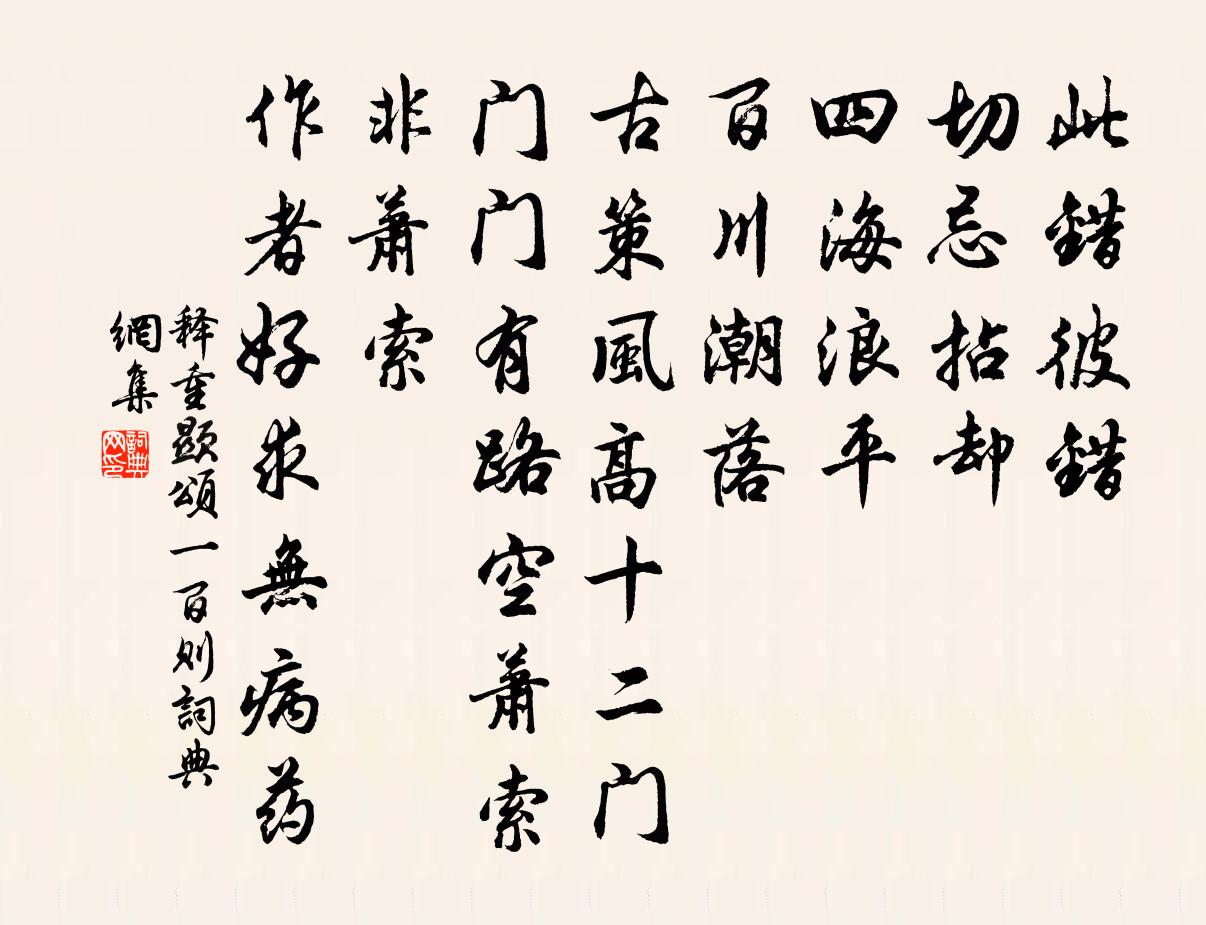 此錯彼錯
切忌拈却
四海浪平
百川潮落
古策風高十二门
门门有路空蕭索
非蕭索
作者好求無病药
释重顯頌一百则詞典
網集
詞典
网印